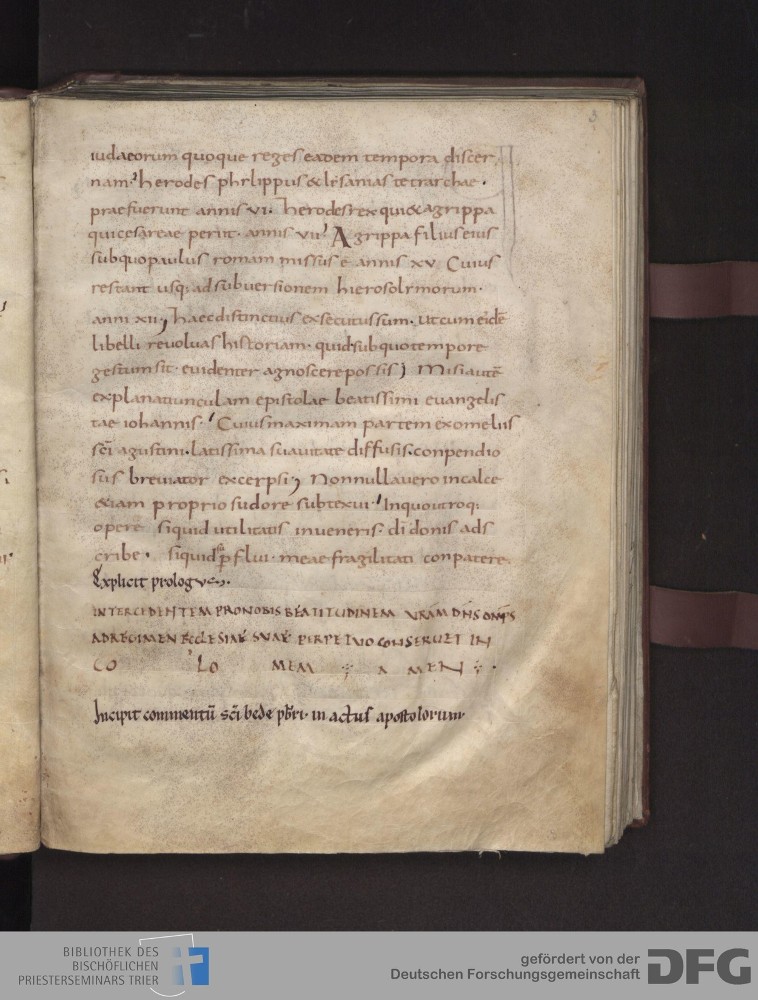 3
iudaeorum quoque reges eadem tempora discer
nam; herodes philippus & lisanias tetrarchae.
praefuerunt annis VI. herodes rex qui & agrippa
qui cesareae periit. annis VII; Agrippa filius eius
sub quo paulus romam missus ē annis XV Cuius
restant usq; ad subuersionem hierosolimorum.
anni XII; haec distinctius exsecutus sum. ut cum eidē
libelli reuoluas historiam. quid sub quo tempore
gestum sit. euidenter agnoscere possis; Misi autē
explanatiunculam epistolae beatissimi euangelis
tae iohannis. Cuius maximam partem ex omeliis
sc̄i agustini. latissima suauitate diffusis. conpendio
sus breuiator excerpsi; Nonnulla uero in calce
&iam proprio sudore subtexui. In quo utroq;
opere siquid utilitatis inueneris. di donis ads
cribe. siquid sup̄flui. meae fragilitati conpatere.
Explicit prologus.
INTERCEDENTEM PRO NOBIS BEATITUDINEM VRAM DN̄S OMP̄S
AD REGIMEN ECCLESIAE SVAE PERPETVO CONSERUET IN
CO LO MEM A MEN
Incipit commentū sc̄i bede pb̄ri in actus apostolorum
BIBLIOTHEK DES
BISCHÖFLICHEN
PRIESTERSEMINARS TRIER
gefördert von der
Deutschen Forschungsgemeinschaft
DFG